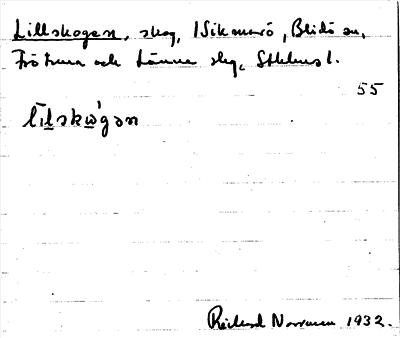 Lillskogen, skog, Sikmarö, Blidö sn,
Frötuna och Länna skg, Sthlms l.
55
lı̄lskὼgən
Rickard Norrman 1932.